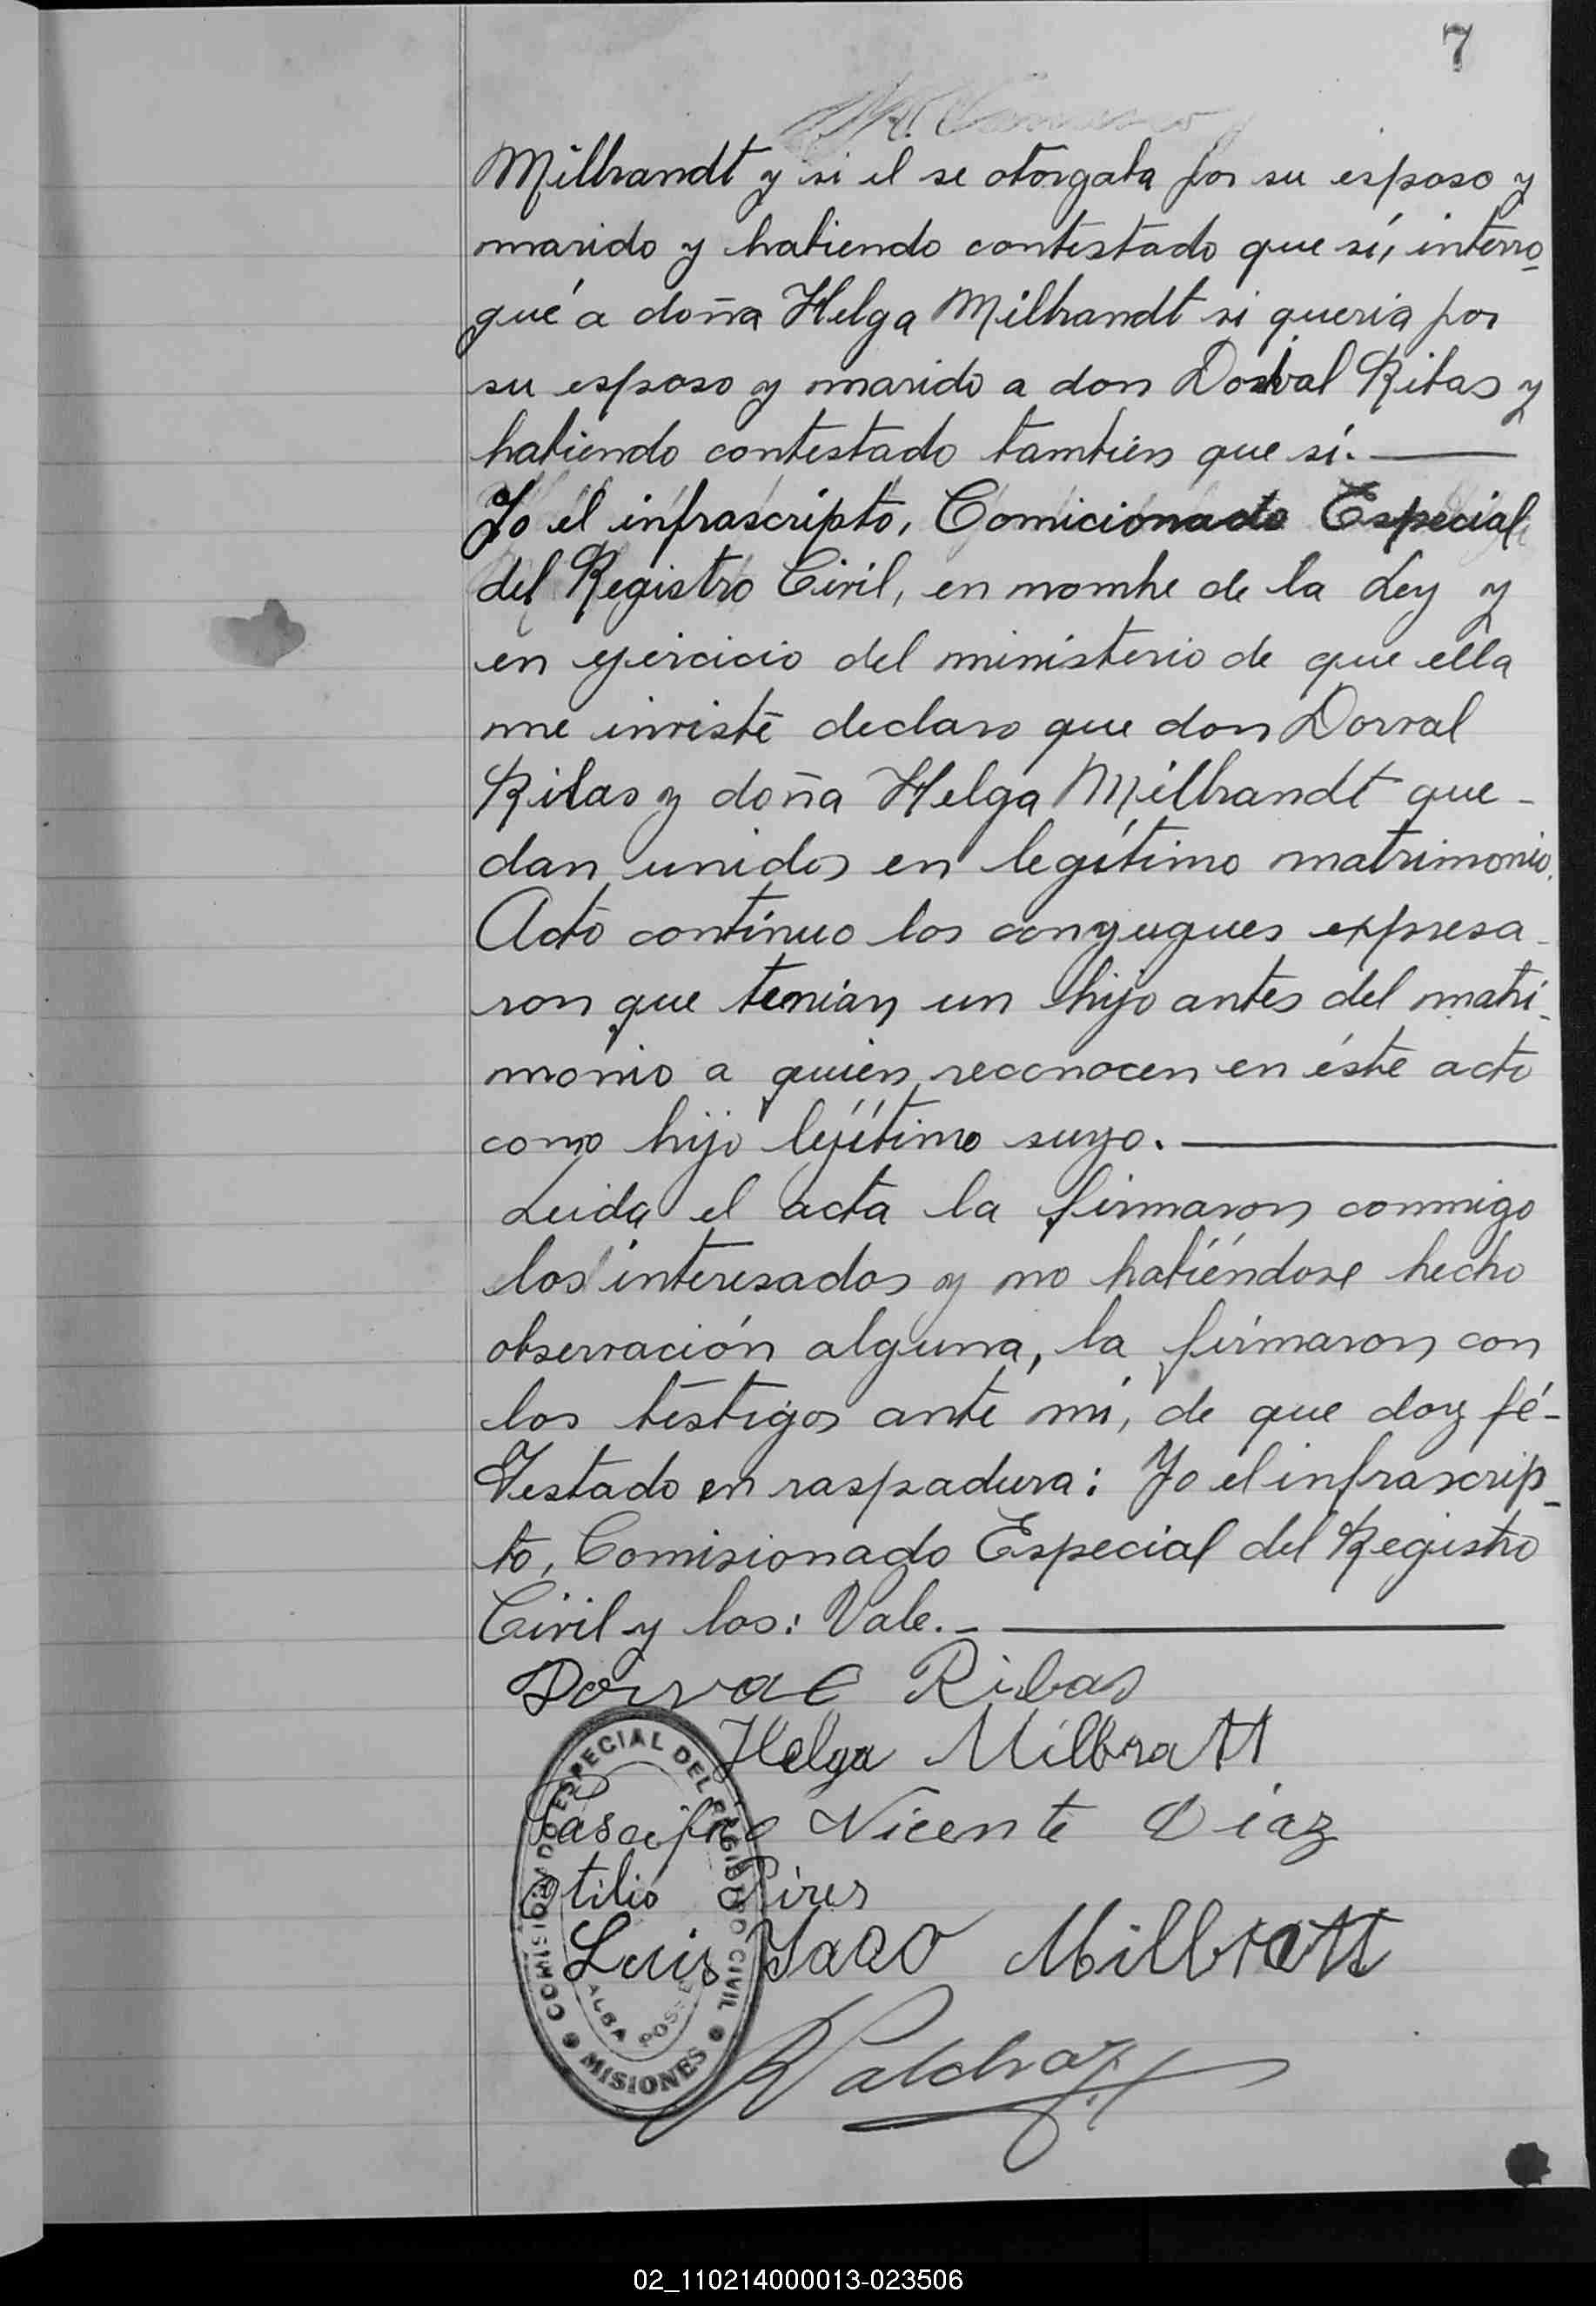 7
Milbrandt y si el se otorgaba por su esposo y
marido y habiendo contestado que sí, interro-
gué a doña Helga Milbrandt si queria por
su esposo y marido a don Dorval Ribas y
habiendo contestado tambien que sí.
Yo el infrascripto, Comicionado Especial
del Registro Civil, en nombre de la Ley y
en ejercicio del ministerio de que ella
me inviste declaro que don Dorval
Ribas y doña Helga Milbrandt que-
dan unidos en legítimo matrimonio.
Acto contínuo los conyugues expresa-
ron que tenian un hijo antes del matri-
monio a quien reconocen en éste acto
como hijo lejítimo suyo.
Leida el acta la firmaron conmigo
los interesados y no habiéndose hecho
observación alguna, la firmaron con
los testigos ante mí, de que doy fé-
Testado en raspadura: Yo el infrascrip-
to, Comisionado Especial del Registro
Civil y los: Vale.-
Dorval Ribas
Helga Milbratt
Vicente Diaz
Otilio Pires
Luis Milbratt
COMISIONADO ESPECIAL DEL REGISTRO CIVIL
ALBA POSSE
MISIONES
02_110214000013-023506